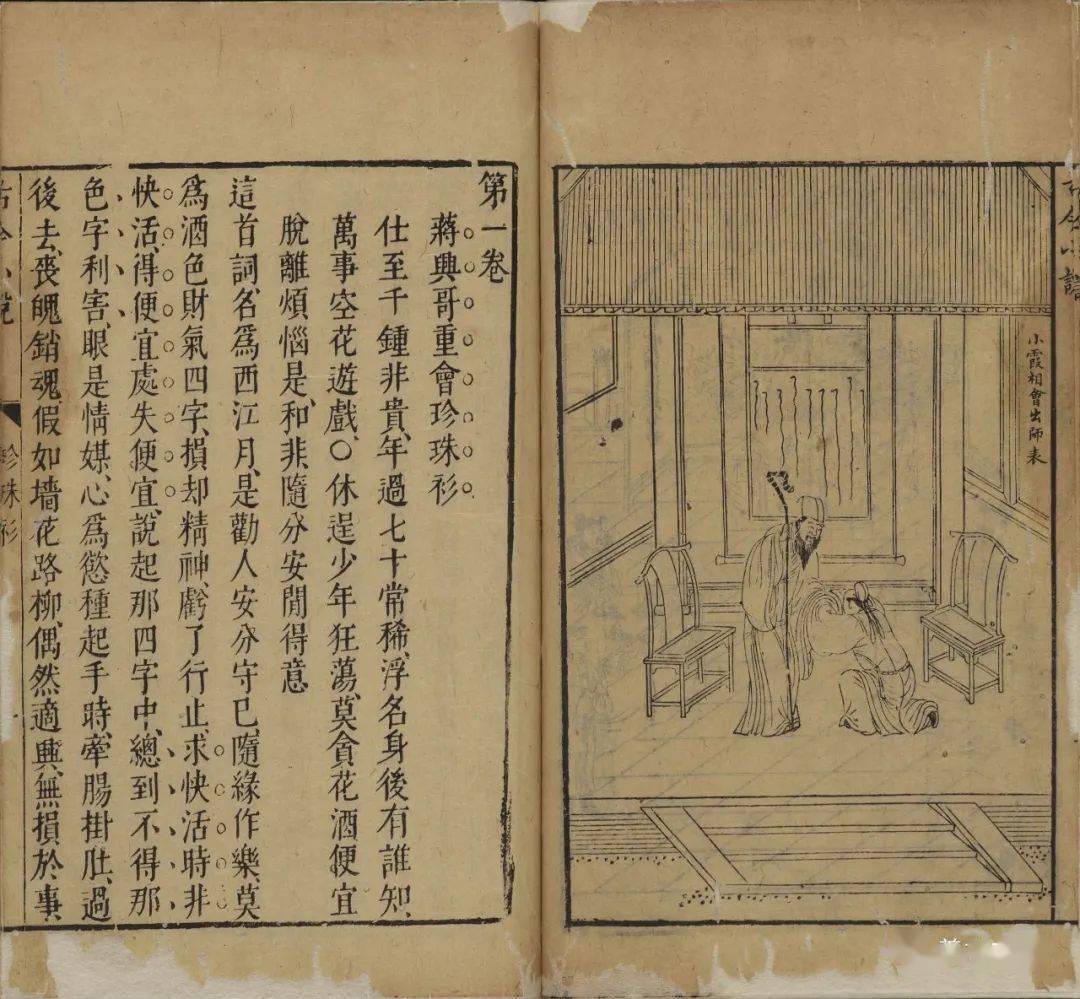 古今小說
小霞相會出師表
第一卷
蔣興哥重會珍珠衫
仕至千鍾非貴、年過七十常稀、浮名身後有誰知、
萬事空花遊戲、○休逞少年狂蕩、莫貪花酒便宜
脫離煩惱是和非、隨分安閒得意
這首詞、名爲西江月、是勸人安分守己、隨緣作樂、莫
爲酒色財氣四字、損却精神、虧了行止、求快活時非
快活、得便宜處失便宜、說起那四字中、總到不得那
色字利害、眼是情媒、心爲慾種、起手時、牽腸掛肚、過
後去、喪魄銷魂、假如墻花路柳、偶然適興、無損於事、
古今小說
珍珠衫